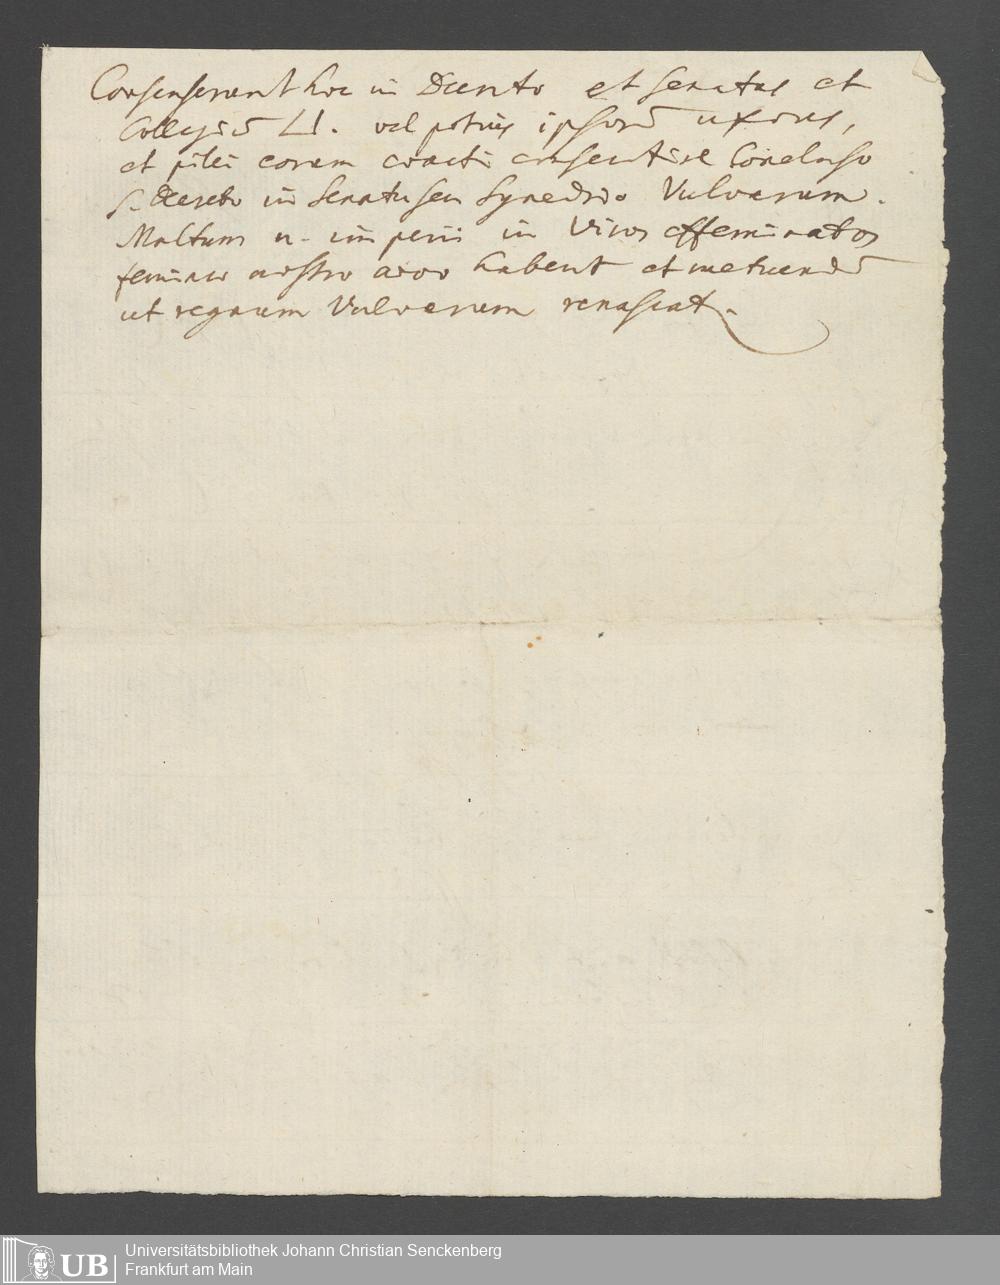 Consenserant hoc in Decreto et Senatus et
Collegiū LI. vel potius ipsorū uxores,
et pilei eorum coacti consentire Concluso
s. Decreto in Senatu seu Synedrio Vulvarum.
Multum n. imperii in Viros effeminatos
feminae nostro aevo habent et metuendū
ut regnum Vulvarum renascat.
UB
Universitätsbibliothek Johann Christian Senckenberg
Frankfurt am Main